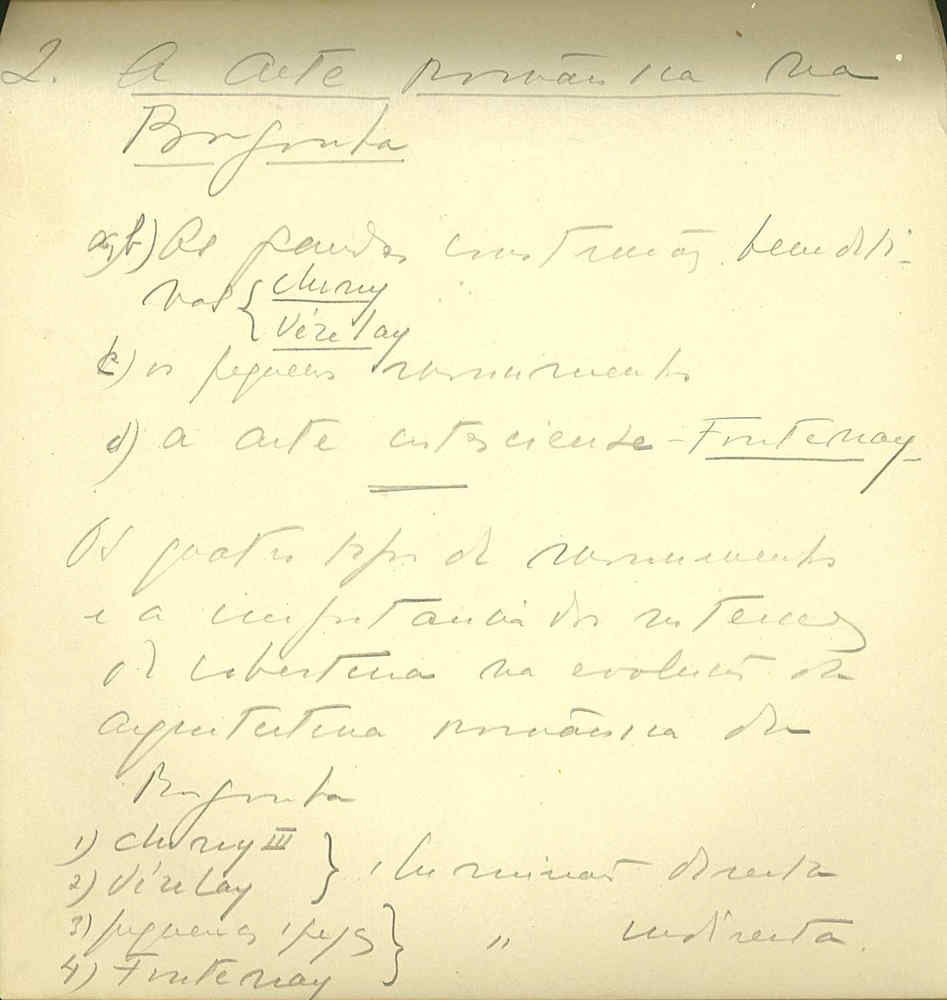 2. A arte românica na
Borgonha
a, b) As grandes construções benediti-
nas { Cluny
Vézelay
c) os pequenos monumentos
d) a arte cisterciense - Fontenay -
Os quatro tipos de monumentos
e a importância dos sistemas
de cobertura na evolução da
arquitectura românica da
Borgonha
1) Cluny III
2) Vézelay } iluminação directa
3) pequenas igrejas
4) Fontenay } " indirecta.